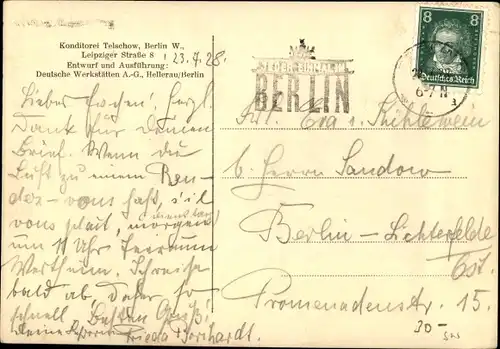 Konditorei Telschow, Berlin W.,
Leipziger Straße 8
Entwurf und Ausführung:
Deutsche Werkstätten A.-G., Hellerau/Berlin
23.7.28.
Lieber
Dank für Deinen
Brief. Wenn Du
Lust zu einem Ren-
dez-vous hast, s'il
vous plait, morgen
dienstag
um 11 Uhr Teeraum
Wertheim. Schreibe
bald ab, Daher so
schnell. Besten Gruß!
Deine Frieda Borchardt.
JEDER EINMAL IN
BERLIN
8 8
Deutsches Reich
6-7 N
a
Frl. Eva v.
b. Herrn Sandow
Berlin-Lichterfelde
Ost.
Promenadenstr. 15.
30-